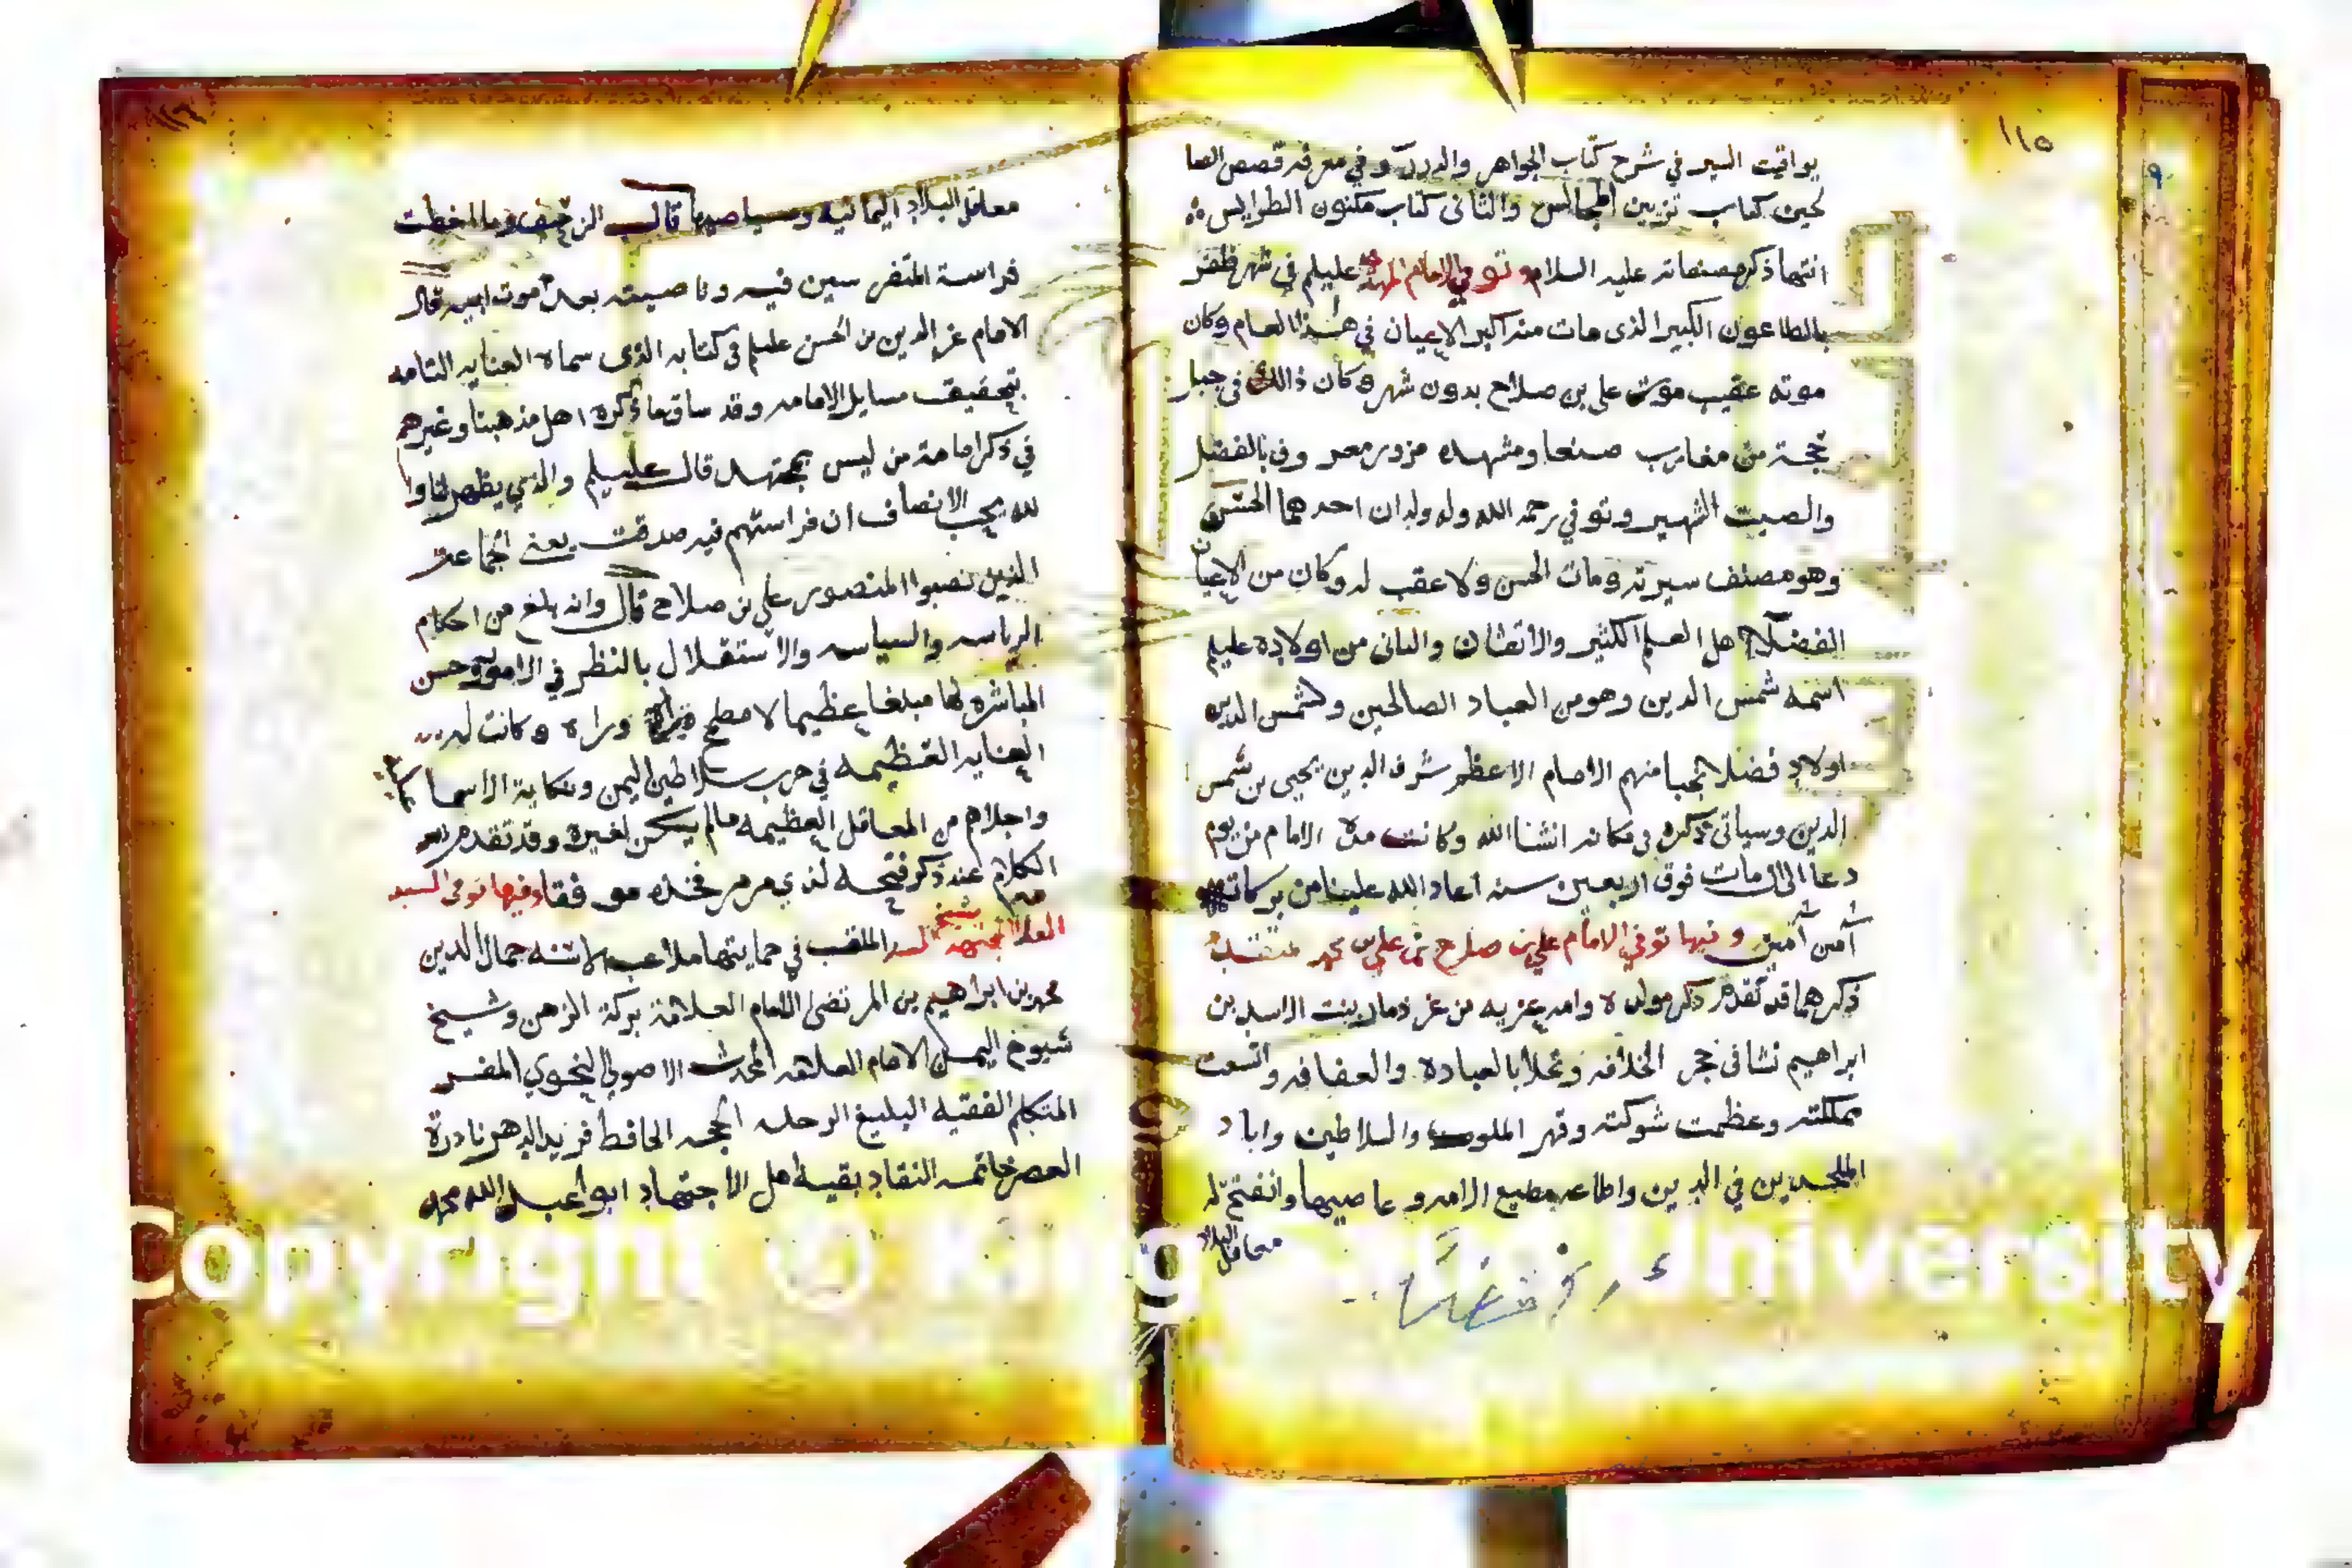 ١١٥
يواقيت السير في شرح كتاب الجواهر والدرر وفي معرفه قصص الصا
لحين كتاب تزيين المجالس والثاني كتاب مكنون الطرايس
انتها ذكر مصنفاته عليه السلام وتوفي الامام المهدي عليلم في شهر ظفر
بالطاعون الكبير الذي مات منه اكبر الاعيان في هذا العام وكان
موته عقيب موت علي بن صلاح بدون شهر وكان ذالك في جبل
حجة من مغارب صنعا ومشهده مزور معر وف بالفضل
والصيت الشهير وتوفي رحمه الله وله ولدان احدهما الحسن
وهو مصنف سيرته ومات الحسن ولا عقب له وكان من الاعيان
الفضلا اهل العلم الكثير والاتقان والثاني من اولاده عليلم
اسمه شمس الدين وهو من العباد الصالحين ولشمس الدين
اولاد فضلا نجبا منهم الامام الاعظم شرف الدين يحيى بن شمس
الدين وسياتي ذكره في مكانه انشا الله وكانت مدة الامام من يوم
دعا الى ان مات فوق اربعين سنه اعاد الله علينا من بركاته
آمين آمين وفيها توفي الامام علي بن صلاح بن علي بن محمد
ذكرهما قد تقدم ذكر مولده وامه بنت الاسد بن
ابراهيم نشا في حجر الخلافه وتحلا بالعبادة والعفافه واتسعت
مملكته وعظمت شوكته وقهر الملوك والسلاطين واباد
الملحدين في الدين واطاعه مطيع الامه وعاصيها وانفتح له
معاقل البلاد
معاقل البلاد اليمانيه وصياصيها قال الزحيف وما اخطت
فراسة المتفرسين فيه وناصيته بعد موت ابيه قال
الامام عز الدين بن الحسن عليلم في كتابه الذي سماه العنايه التامه
بتحقيق مسايل الامامه وقد ساق ما ذكره اهل مذهبنا وغيرهم
في ذكر امامة من ليس بمجتهد قال عليلم والذي يظهر لنا وا
لله يحب الانصاف ان فراستهم فيه صدقت يعني الجماعة
الذين نصبوا المنصور علي بن صلاح قال وانه بلغ من احكام
الرياسه والسياسه والاستقلال بالنظر في الامور وحسن
المباشره لها مبلغا عظيما لا مطمح وراه وكانت له
العنايه العظيمه في حرب سلاطين اليمن ونكاية الاسما
واجلاهم من المعاقل العظيمه مالم يكن لغيره وقد تقدم
الكلام عند ذكر فتحه لذي مرمر فخذه موفقا وفيها توفي السيد
الملقب في حمايتها جمال الدين
محمد بن ابراهيم بن المرتضى الامام العلامة بركة الزمن وشيخ
شيوخ اليمن الامام العلامه المحدث الاصولي النحوي المفسر
المتكلم الفقيه البليغ الرحله الحجه الحافظ فريد الدهر نادرة
العصر خاتمه النقاد بقية اهل الاجتهاد ابو عبد الله محمد
Copyright © King Saud University